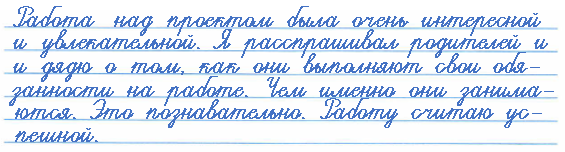 Работа над проектом была очень интересной
и увлекательной. Я расспрашивал родителей и
и дядю о том, как они выполняют свои обя-
занности на работе. Чем именно они занима-
ются. Это познавательно. Работу считаю ус-
пешной.